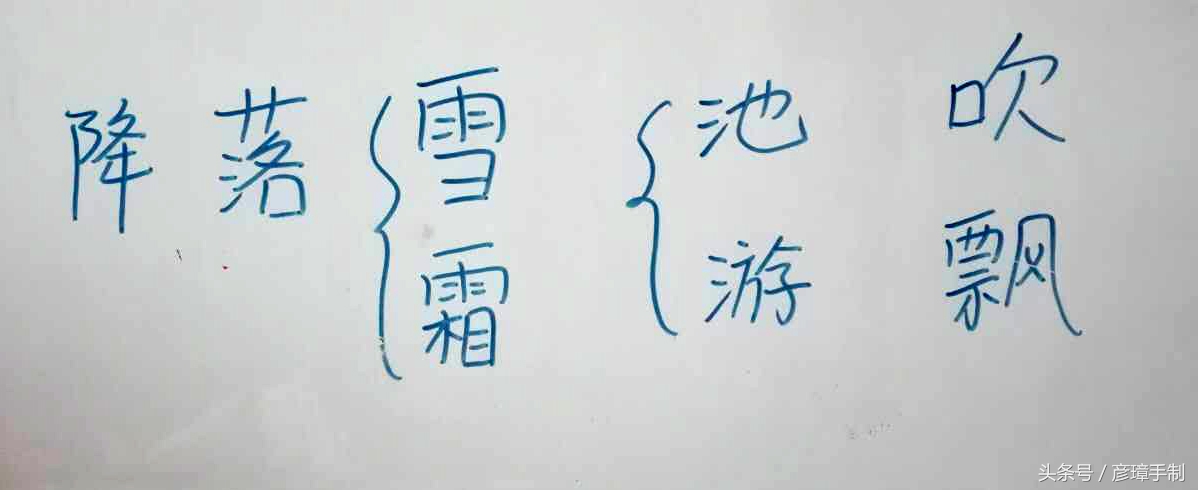 降 落 雪 池 吹
霜 游 飘
头条号 / 彦璋手制